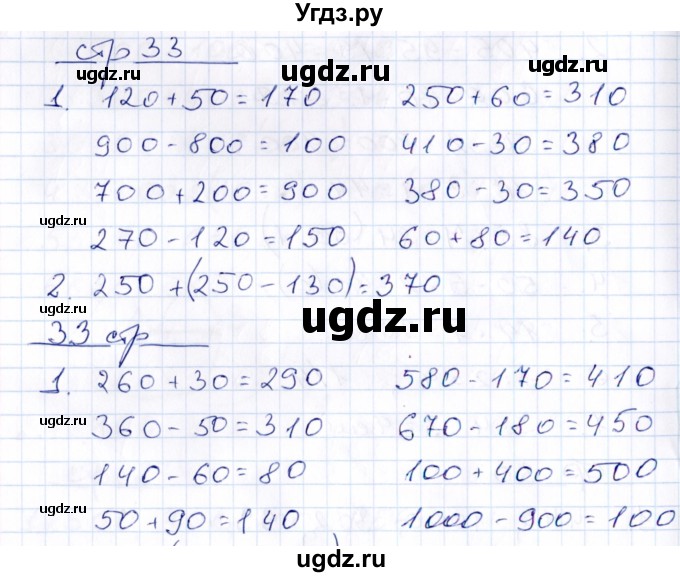 Угдз.ру
стр 33
ugdz.ru ugdz.ru ugdz.ru
1. 120 + 50 = 170 250 + 60 = 310
900 - 800 = 100 410 - 30 = 380
700 + 200 = 900 380 - 30 = 350
ugdz.ru ugdz.ru
270 - 120 = 150 60 + 80 = 140
2. 250 + (250 - 130) = 370
ugdz.ru ugdz.ru
33 стр
1. 260 + 30 = 290 580 - 170 = 410
360 - 50 = 310 670 - 180 = 450
ugdz.ru ugdz.ru
140 - 60 = 80 100 + 400 = 500
50 + 90 = 140 1000 - 900 = 100
ugdz.ru